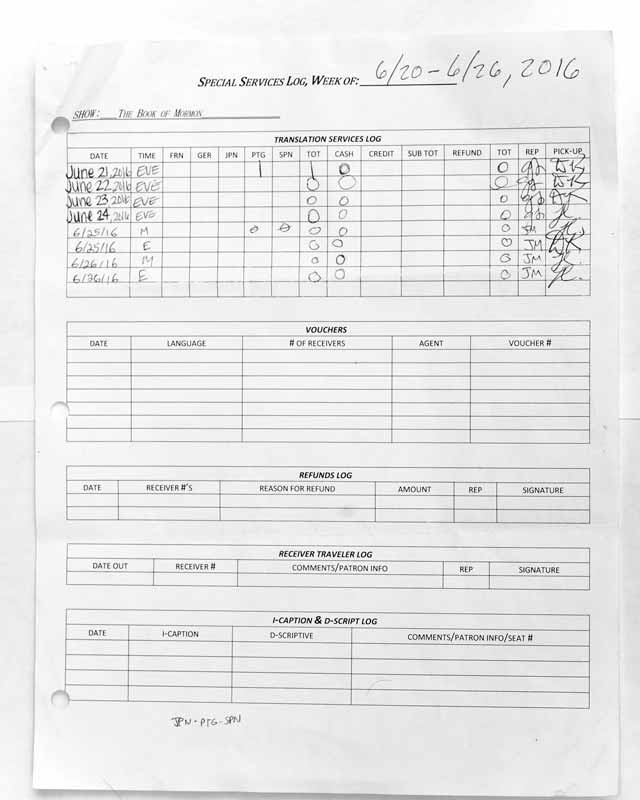 SPECIAL SERVICES LOG, WEEK OF: 6/20-6/26, 2016
SHOW: THE BOOK OF MORMON
TRANSLATION SERVICES LOG
DATE TIME FRN GER JPN PTG SPN TOT CASH CREDIT SUB TOT REFUND TOT REP PICK-UP
June 21, 2016 EVE 1 1 0 0
June 22, 2016 EVE 0 0 0
June 23, 2016 EVE 0 0 0
June 24, 2016 EVE 0 0 0
6/25/16 M 0 0 0 0 0 JM
6/25/16 E 0 0 0 JM
6/26/16 M 0 0 0 JM
6/26/16 E 0 0 0 JM
VOUCHERS
DATE LANGUAGE # OF RECEIVERS AGENT VOUCHER #
REFUNDS LOG
DATE RECEIVER #'S REASON FOR REFUND AMOUNT REP SIGNATURE
RECEIVER TRAVELER LOG
DATE OUT RECEIVER # COMMENTS/PATRON INFO REP SIGNATURE
I-CAPTION & D-SCRIPT LOG
DATE I-CAPTION D-SCRIPTIVE COMMENTS/PATRON INFO/SEAT #
JPN - PTG - SPN